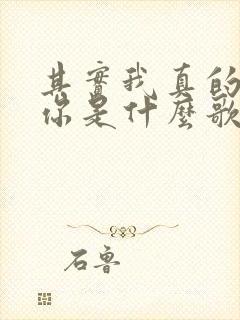 其實我真的
你是什麼歌
石魯